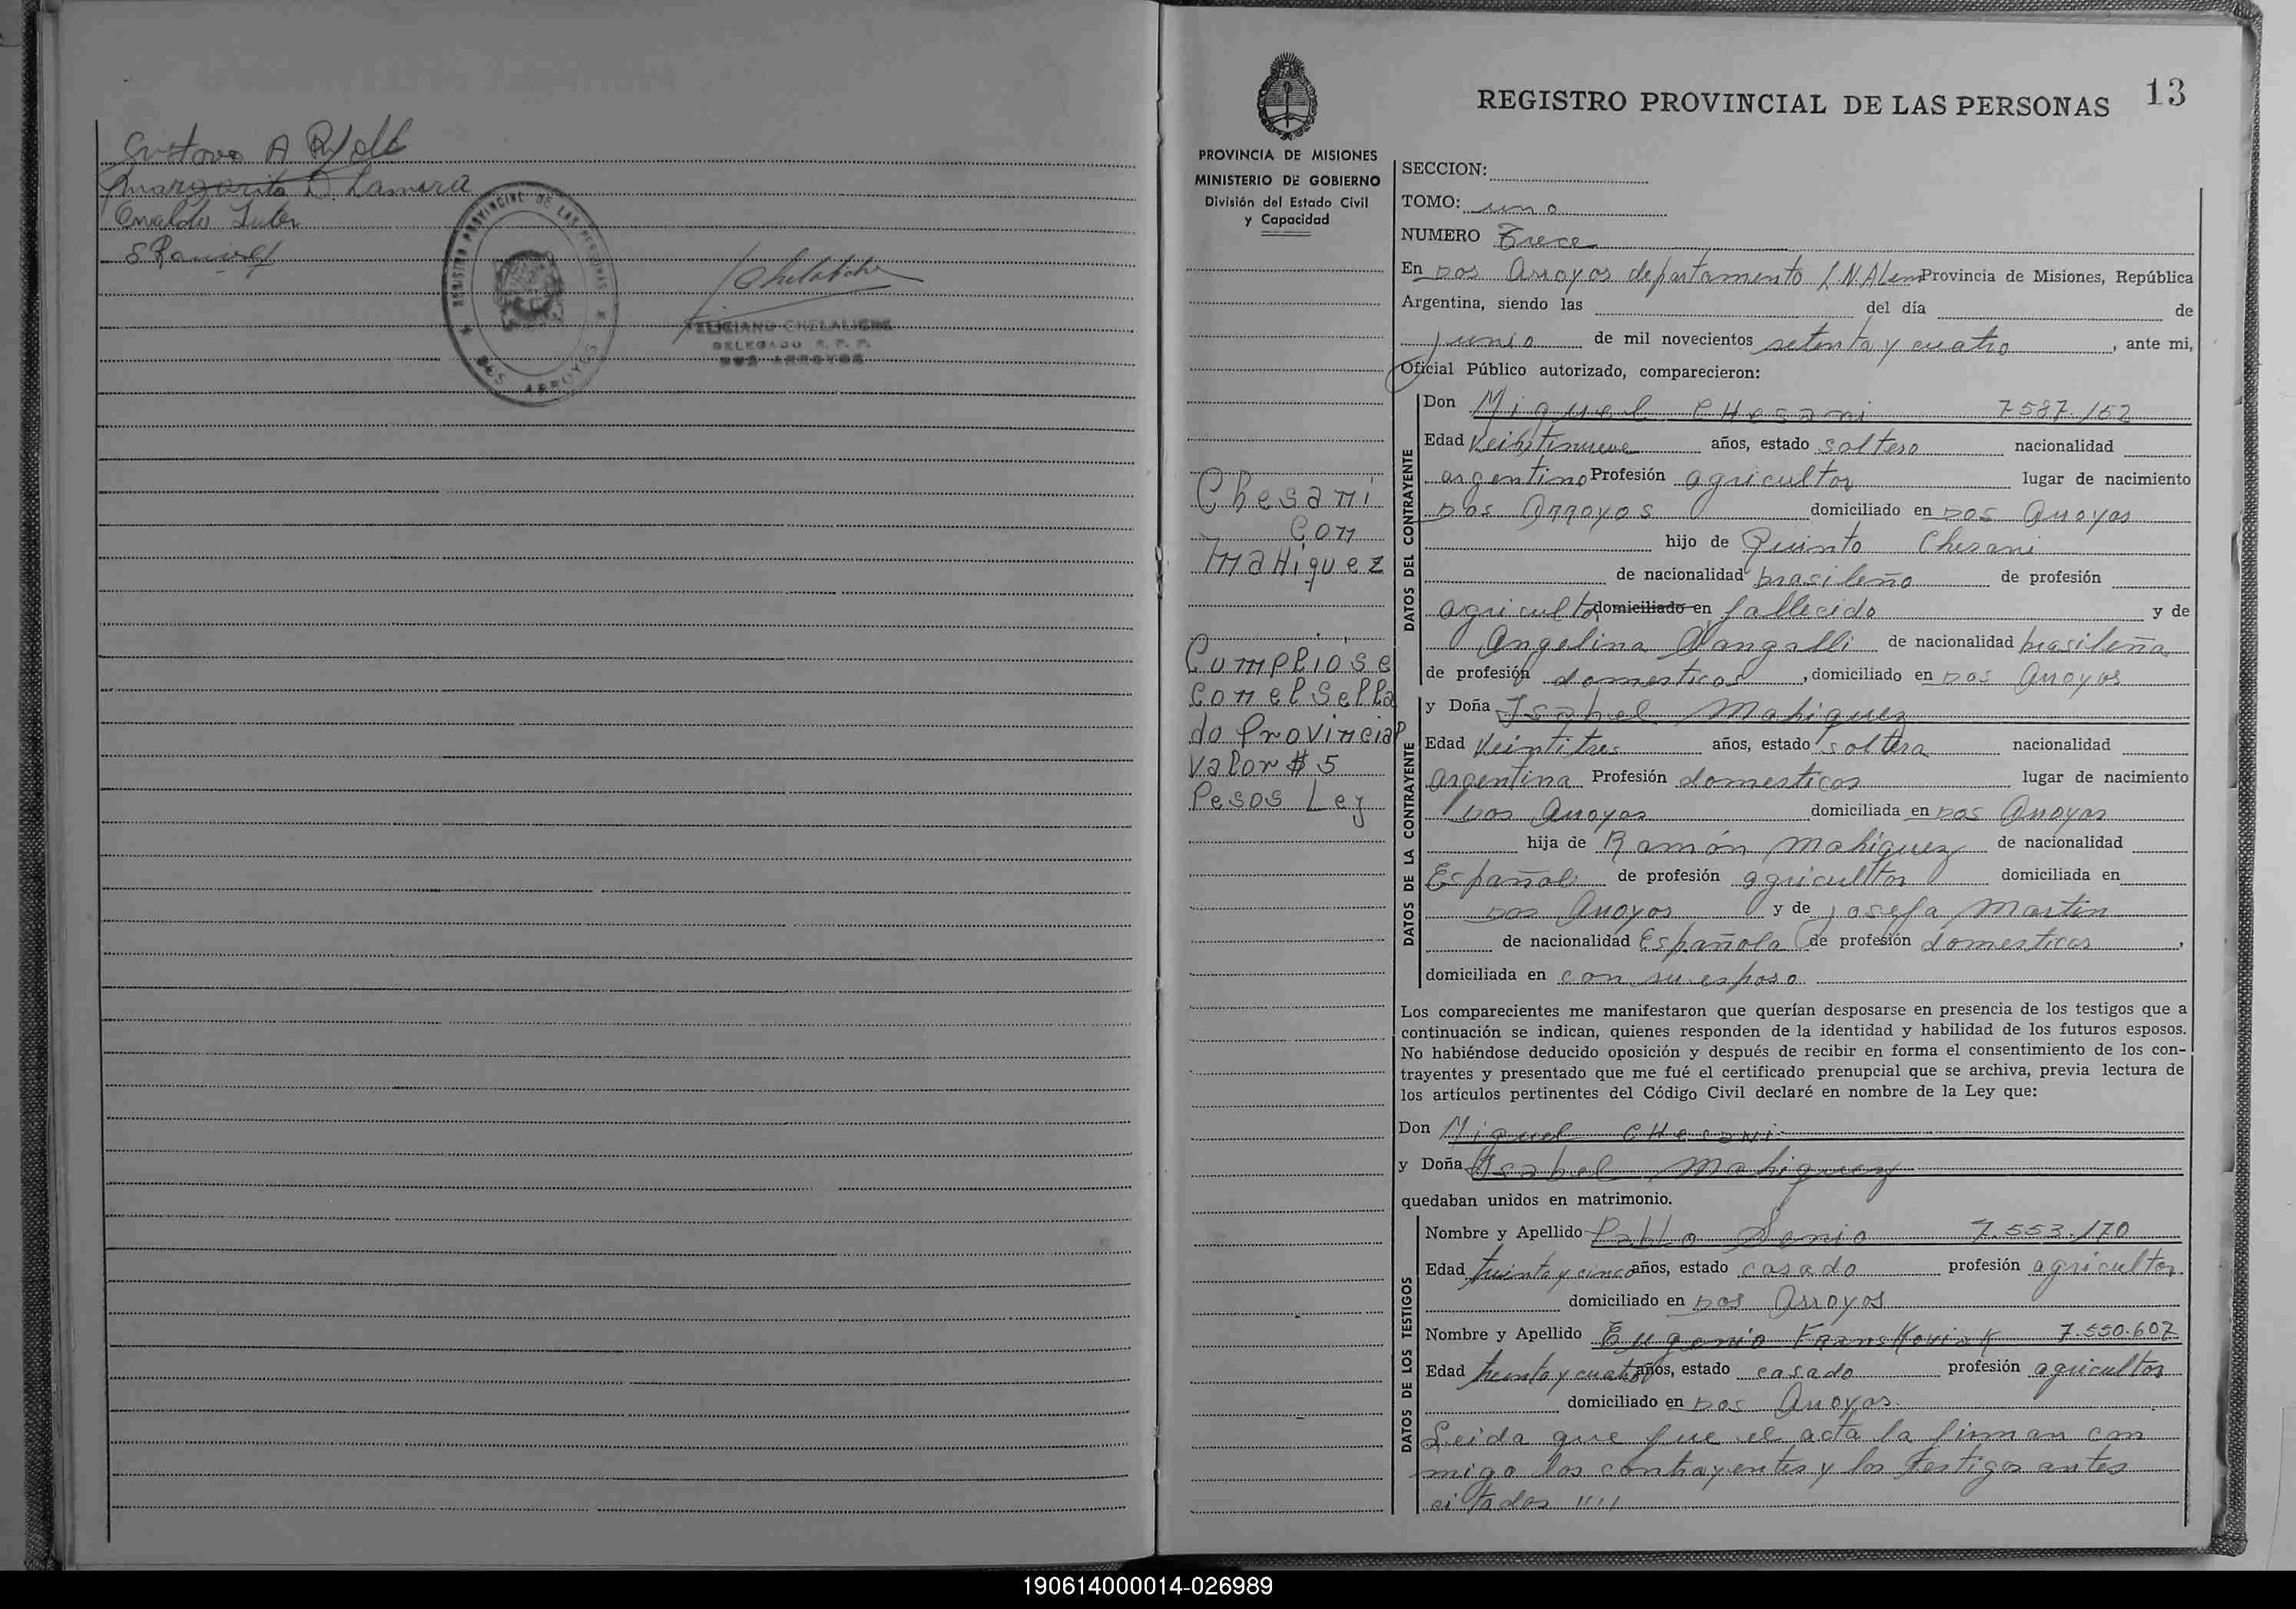 Gustavo A
Margarita D. Lamera
Osvaldo
S Ramirez
REGISTRO PROVINCIAL DE LAS PERSONAS
DOS ARROYOS
FELICIANO CHELALICHE
DELEGADO R. P. P.
DOS ARROYOS
13
REGISTRO PROVINCIAL DE LAS PERSONAS
PROVINCIA DE MISIONES
MINISTERIO DE GOBIERNO
División del Estado Civil
y Capacidad
Chesani
Con
Mahiquez
Cumpliose
con el Sella
do Provincial
Valor $ 5
Pesos Ley
SECCION:
TOMO: uno
NUMERO Trece
En Dos Arroyos departamento L.N.Alem Provincia de Misiones, República
Argentina, siendo las del día de
junio de mil novecientos setenta y cuatro, ante mi,
Oficial Público autorizado, comparecieron:
DATOS DEL CONTRAYENTE
Don Miguel CHesani 7587.152
Edad Veintinueve años, estado soltero nacionalidad
argentino Profesión agricultor lugar de nacimiento
Dos Arroyos domiciliado en Dos Arroyos
hijo de Quinto Chesani
de nacionalidad brasileño de profesión
agricultor domiciliado en fallecido y de
Angelina de nacionalidad brasileña
de profesión domesticos, domiciliado en Dos Arroyos
DATOS DE LA CONTRAYENTE
y Doña Isabel Mahiquez
Edad Veintitres años, estado soltera nacionalidad
argentina Profesión domesticos lugar de nacimiento
Dos Arroyos domiciliada en Dos Arroyos
hija de Ramón Mahiquez de nacionalidad
Español de profesión agricultor domiciliada en
Dos Arroyos y de Josefa Martin
de nacionalidad Española de profesión domesticos,
domiciliada en con su esposo
Los comparecientes me manifestaron que querían desposarse en presencia de los testigos que a
continuación se indican, quienes responden de la identidad y habilidad de los futuros esposos.
No habiéndose deducido oposición y después de recibir en forma el consentimiento de los con-
trayentes y presentado que me fué el certificado prenupcial que se archiva, previa lectura de
los artículos pertinentes del Código Civil declaré en nombre de la Ley que:
Don Miguel CHesani
y Doña Isabel Mahiquez
quedaban unidos en matrimonio.
DATOS DE LOS TESTIGOS
Nombre y Apellido Pablo 7.553.170
Edad treinta y cinco años, estado casado profesión agricultor
domiciliado en Dos Arroyos
Nombre y Apellido Eugenio 7.550.607
Edad treinta y cuatro años, estado casado profesión agricultor
domiciliado en Dos Arroyos
Leida que fue el acta la firman con
migo los contrayentes y los testigos antes
citados
190614000014-026989